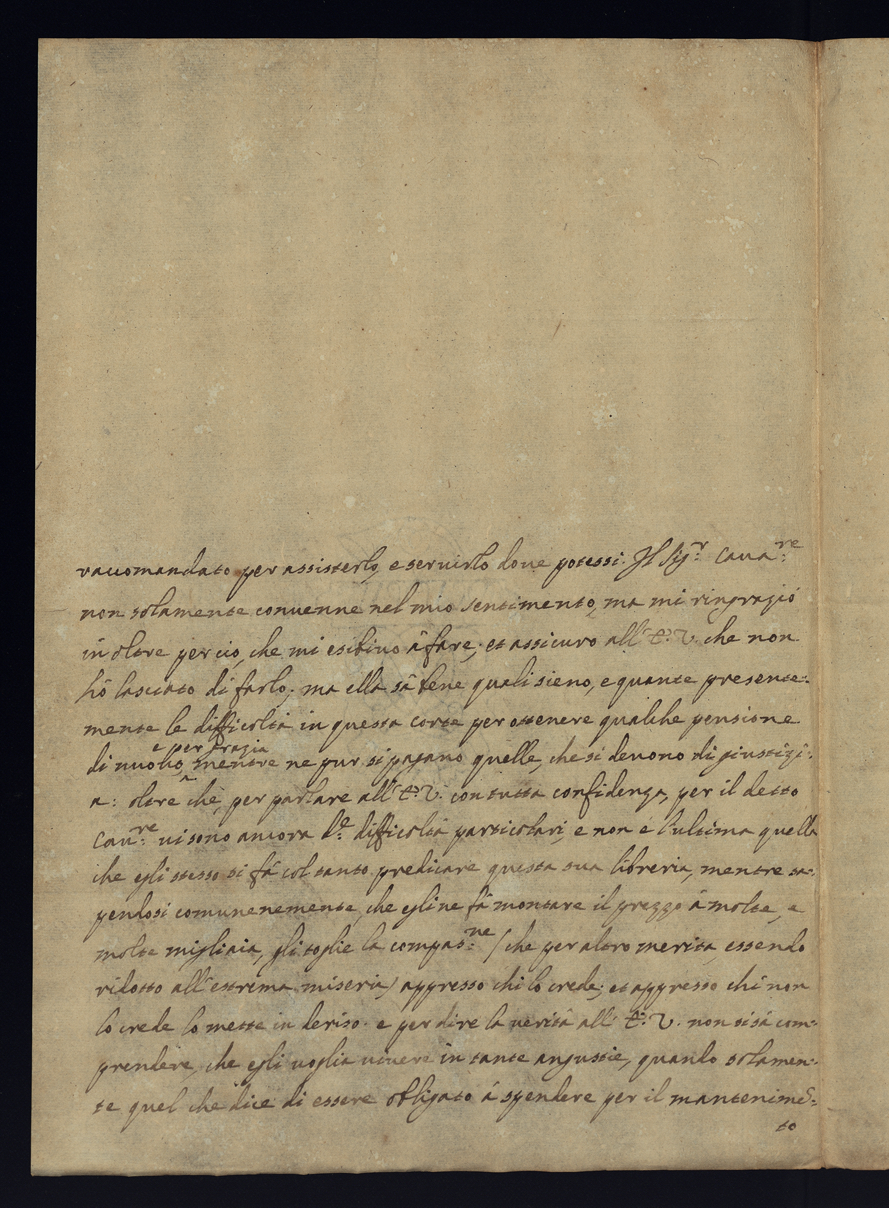 raccomandato per assisterlo, e seruirlo doue potessi. Il Sig.r Caua.re
non solamente conuenne nel mio sentimento, ma mi ringraziò
in oltre per ciò, che mi esibiuo à fare; et assicuro all' E.V. che non
hò lasciato di farlo; ma ella sà bene quali sieno, e quante presente-
mente le difficoltà in questa corte per ottenere qualche pensione
e per grazia
di nuouo, mentre ne pur si pagano quelle, che si deuono di giustizi-
a: oltre che, per parlare all' E.V. con tutta confidenza, per il detto
Cau.re ui sono ancora d.e difficoltà particolari, e non è l'ultima quella
che egli stesso si fà col tanto predicare questa sua libreria, mentre sa-
pendosi comunenemente, che egli ne fà montare il prezzo à molte, e
molte migliaia, gli toglie la compas.ne / che per altro merita, essendo
ridotto all' estrema miseria / appresso chi lo crede; et appresso chi non
lo crede lo mette in deriso. e per dire la uerità all' E.V. non si sà com-
prendere, che egli uoglia uiuere in tante angustie, quando solamen-
te quel che dice di essere obligato à spendere per il mantenimē-
to